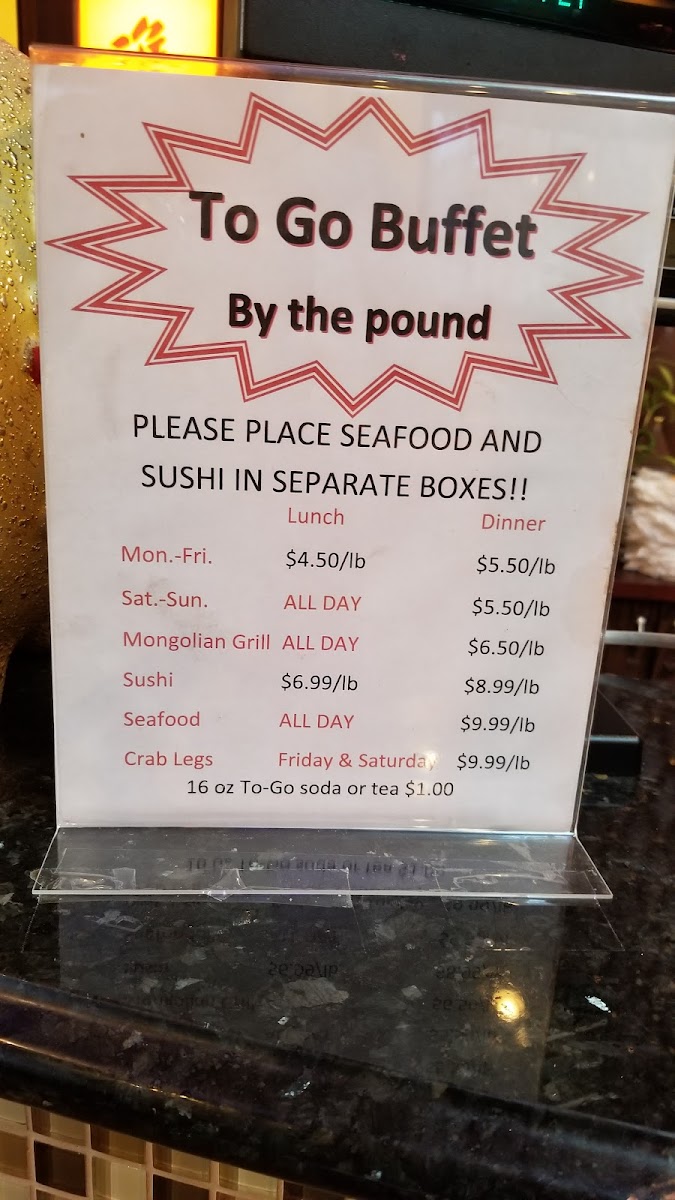 To Go Buffet
By the pound
PLEASE PLACE SEAFOOD AND
SUSHI IN SEPARATE BOXES!!
Lunch Dinner
Mon.-Fri. $4.50/lb $5.50/lb
Sat.-Sun. ALL DAY $5.50/lb
Mongolian Grill ALL DAY $6.50/lb
Sushi $6.99/lb $8.99/lb
Seafood ALL DAY $9.99/lb
Crab Legs Friday & Saturday $9.99/lb
16 oz To-Go soda or tea $1.00